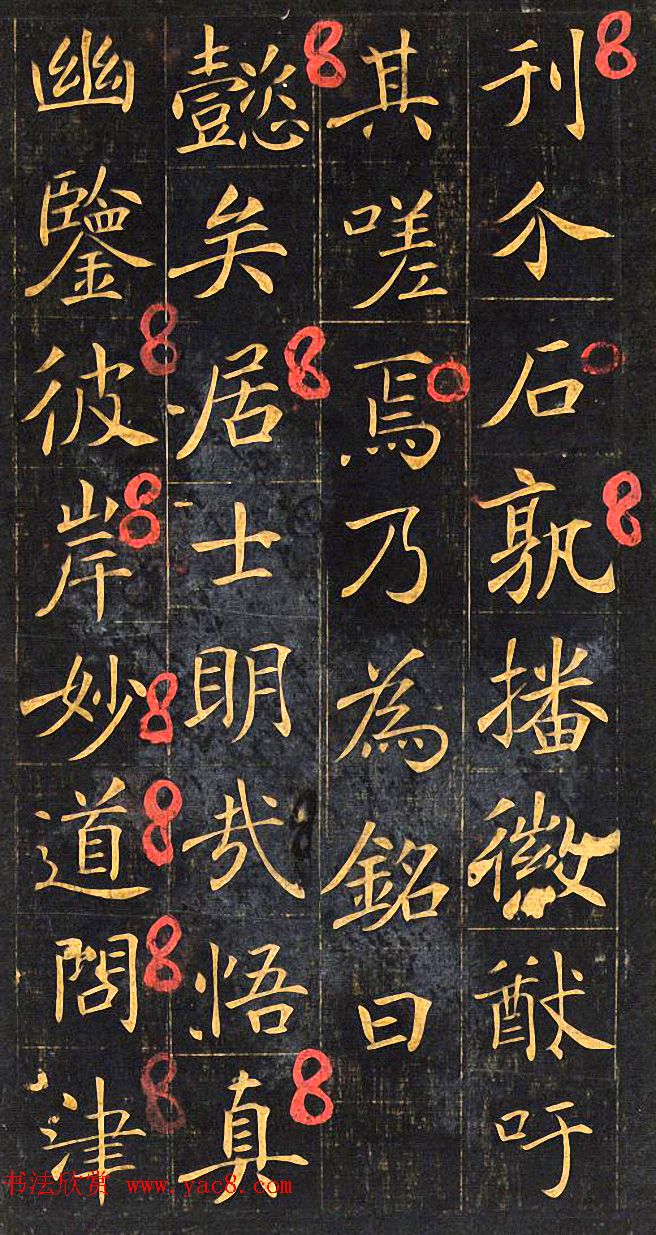 刊介石孰播徽猷吁
其嗟焉乃為銘曰
懿矣居士明哉悟真
幽鑒彼岸妙道問津
书法欣赏 www.yac8.com